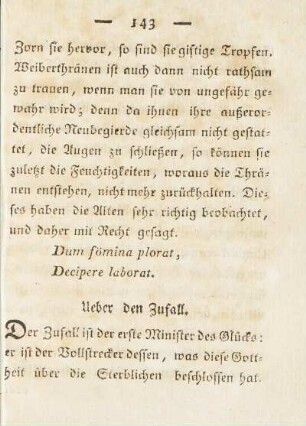 — 143 —
Zorn sie hervor, so sind sie giftige Tropfen.
Weiberthränen ist auch dann nicht rathsam
zu trauen, wenn man sie von ungefähr ge-
wahr wird; denn da ihnen ihre außeror-
dentliche Neubegierde gleichsam nicht gestat-
tet, die Augen zu schließen, so können sie
zuletzt die Feuchtigkeiten, woraus die Thrä-
nen entstehen, nicht mehr zurückhalten. Die-
ses haben die Alten sehr richtig beobachtet,
und daher mit Recht gesagt.
Dum fömina plorat,
Decipere laborat.
Ueber den Zufall.
Der Zufall ist der erste Minister des Glücks:
er ist der Vollstrecker dessen, was diese Gott-
heit über die Sterblichen beschlossen hat.